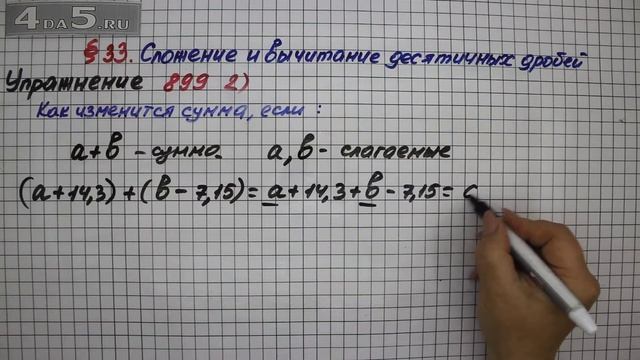 4DA5.RU
§ 33. Сложение и вычитание десятичных дробей
Упражнение 899 2)
Как изменится сумма, если :
а+в - сумма. а, в - слагаемые
(а+14,3)+(в-7,15)= а+14,3+в-7,15= а